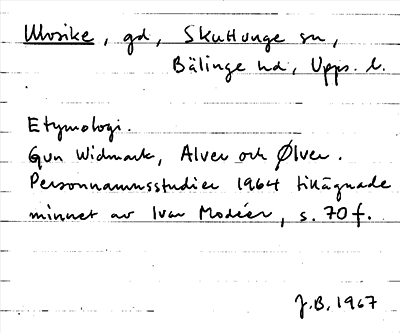 Ulvsike, gd, Skuttunge sn,
Bälinge hd, Upps. l.
Etymologi.
Gun Widmark, Alver och Ølver.
Personnamnsstudier 1964 tillägnade
minnet av Ivar Modéer, s. 70 f.
J.B. 1967